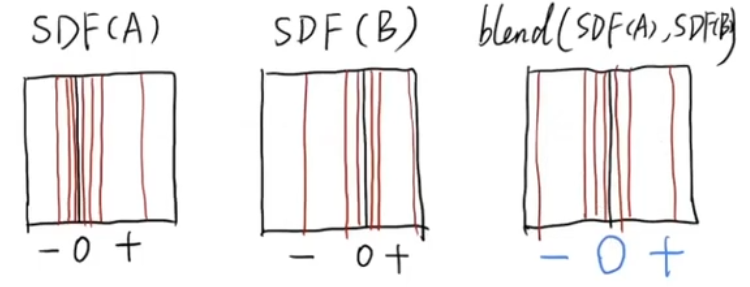 SDF(A) SDF(B) blend(SDF(A), SDF(B))
- 0 + - 0 + - 0 +